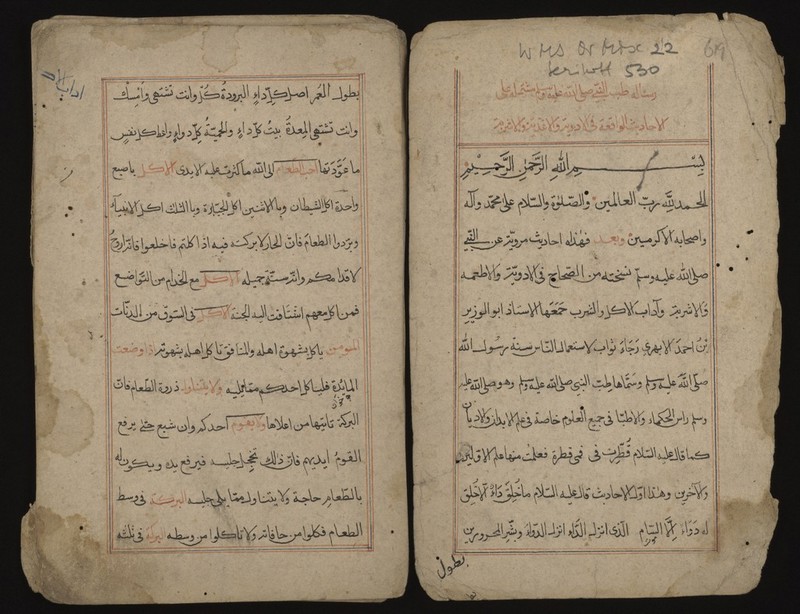 WMS Or Mix 22
Serikoff 530
رساله طب النبي صلى الله عليه وسلم مشتمله على
الاحاديث الواقعة في الادوية والاغذية والاشربة
بسم الله الرحمن الرحيم
الحمد لله رب العالمين والصلوة والسلام على محمد وآله
واصحابه الاكرمين وبعد فهذه احاديث مروية عن النبي
صلى الله عليه وسلم نسخته من الصحايح في الادوية والاطعمه
والاشربة وآداب الاكل والشرب جمعها الاستاذ ابو الوزير
بن احمد الابهري رجاء ثواب لاستعمال الناس سنة رسول الله
صلى الله عليه وسلم وسماها طب النبي صلى الله عليه وسلم وهو صلى الله عليه
وسلم راس الحكماء والاطبا في جميع العلوم خاصة في علم الابدان والاديان
كما قال عليه السلام فطرت في فطرة فعلمت منها علم الاولين
والآخرين وهذا اول الاحاديث قال عليه السلام ما خلق داء الا خلق
له دواء الا السام الذي انزل الداء انزل الدواء وبشر المحرورين
بطول
بطول العمر اصل كل داء البرودة كل وانت تشتهي وامسك
وانت تشتهي المعدة بيت كل داء والحمية كل دواء واعط كل نفس
ما عودتها احب الطعام الى الله ما كثرت عليه الايدي الاكل باصبع
واحدة اكل الشيطان وبالاثنين اكل الجبابرة وبالثلث اكل الانبياء
وبردوا الطعام فان الحار لا بركة فيه اذا اكلتم فاخلعوا فانه اروح
لاقدامكم وانه سنة جميله الاكل مع الخدام من التواضع
فمن اكل معهم اشتاقت اليه الجنة الاكل في السوق من الدناءت
المومن ياكل بشهوة اهله والمنافق ياكل اهله بشهوته اذا وضعت
المائدة فلياكل احدكم مما يليه ولا يتناول ذروة الطعام فان
البركة تاتيها من اعلاها ولا يقوم احدكم وان شبع حتى يرفع
القوم ايديهم فان ذلك يخجل جليسه فيرفع يده ويكون له
بالطعام حاجة ولا يتناول مما يلي جليسه البركة في وسط
الطعام فكلوا من حافاته ولا تاكلوا من وسطه البركة في ثلثه